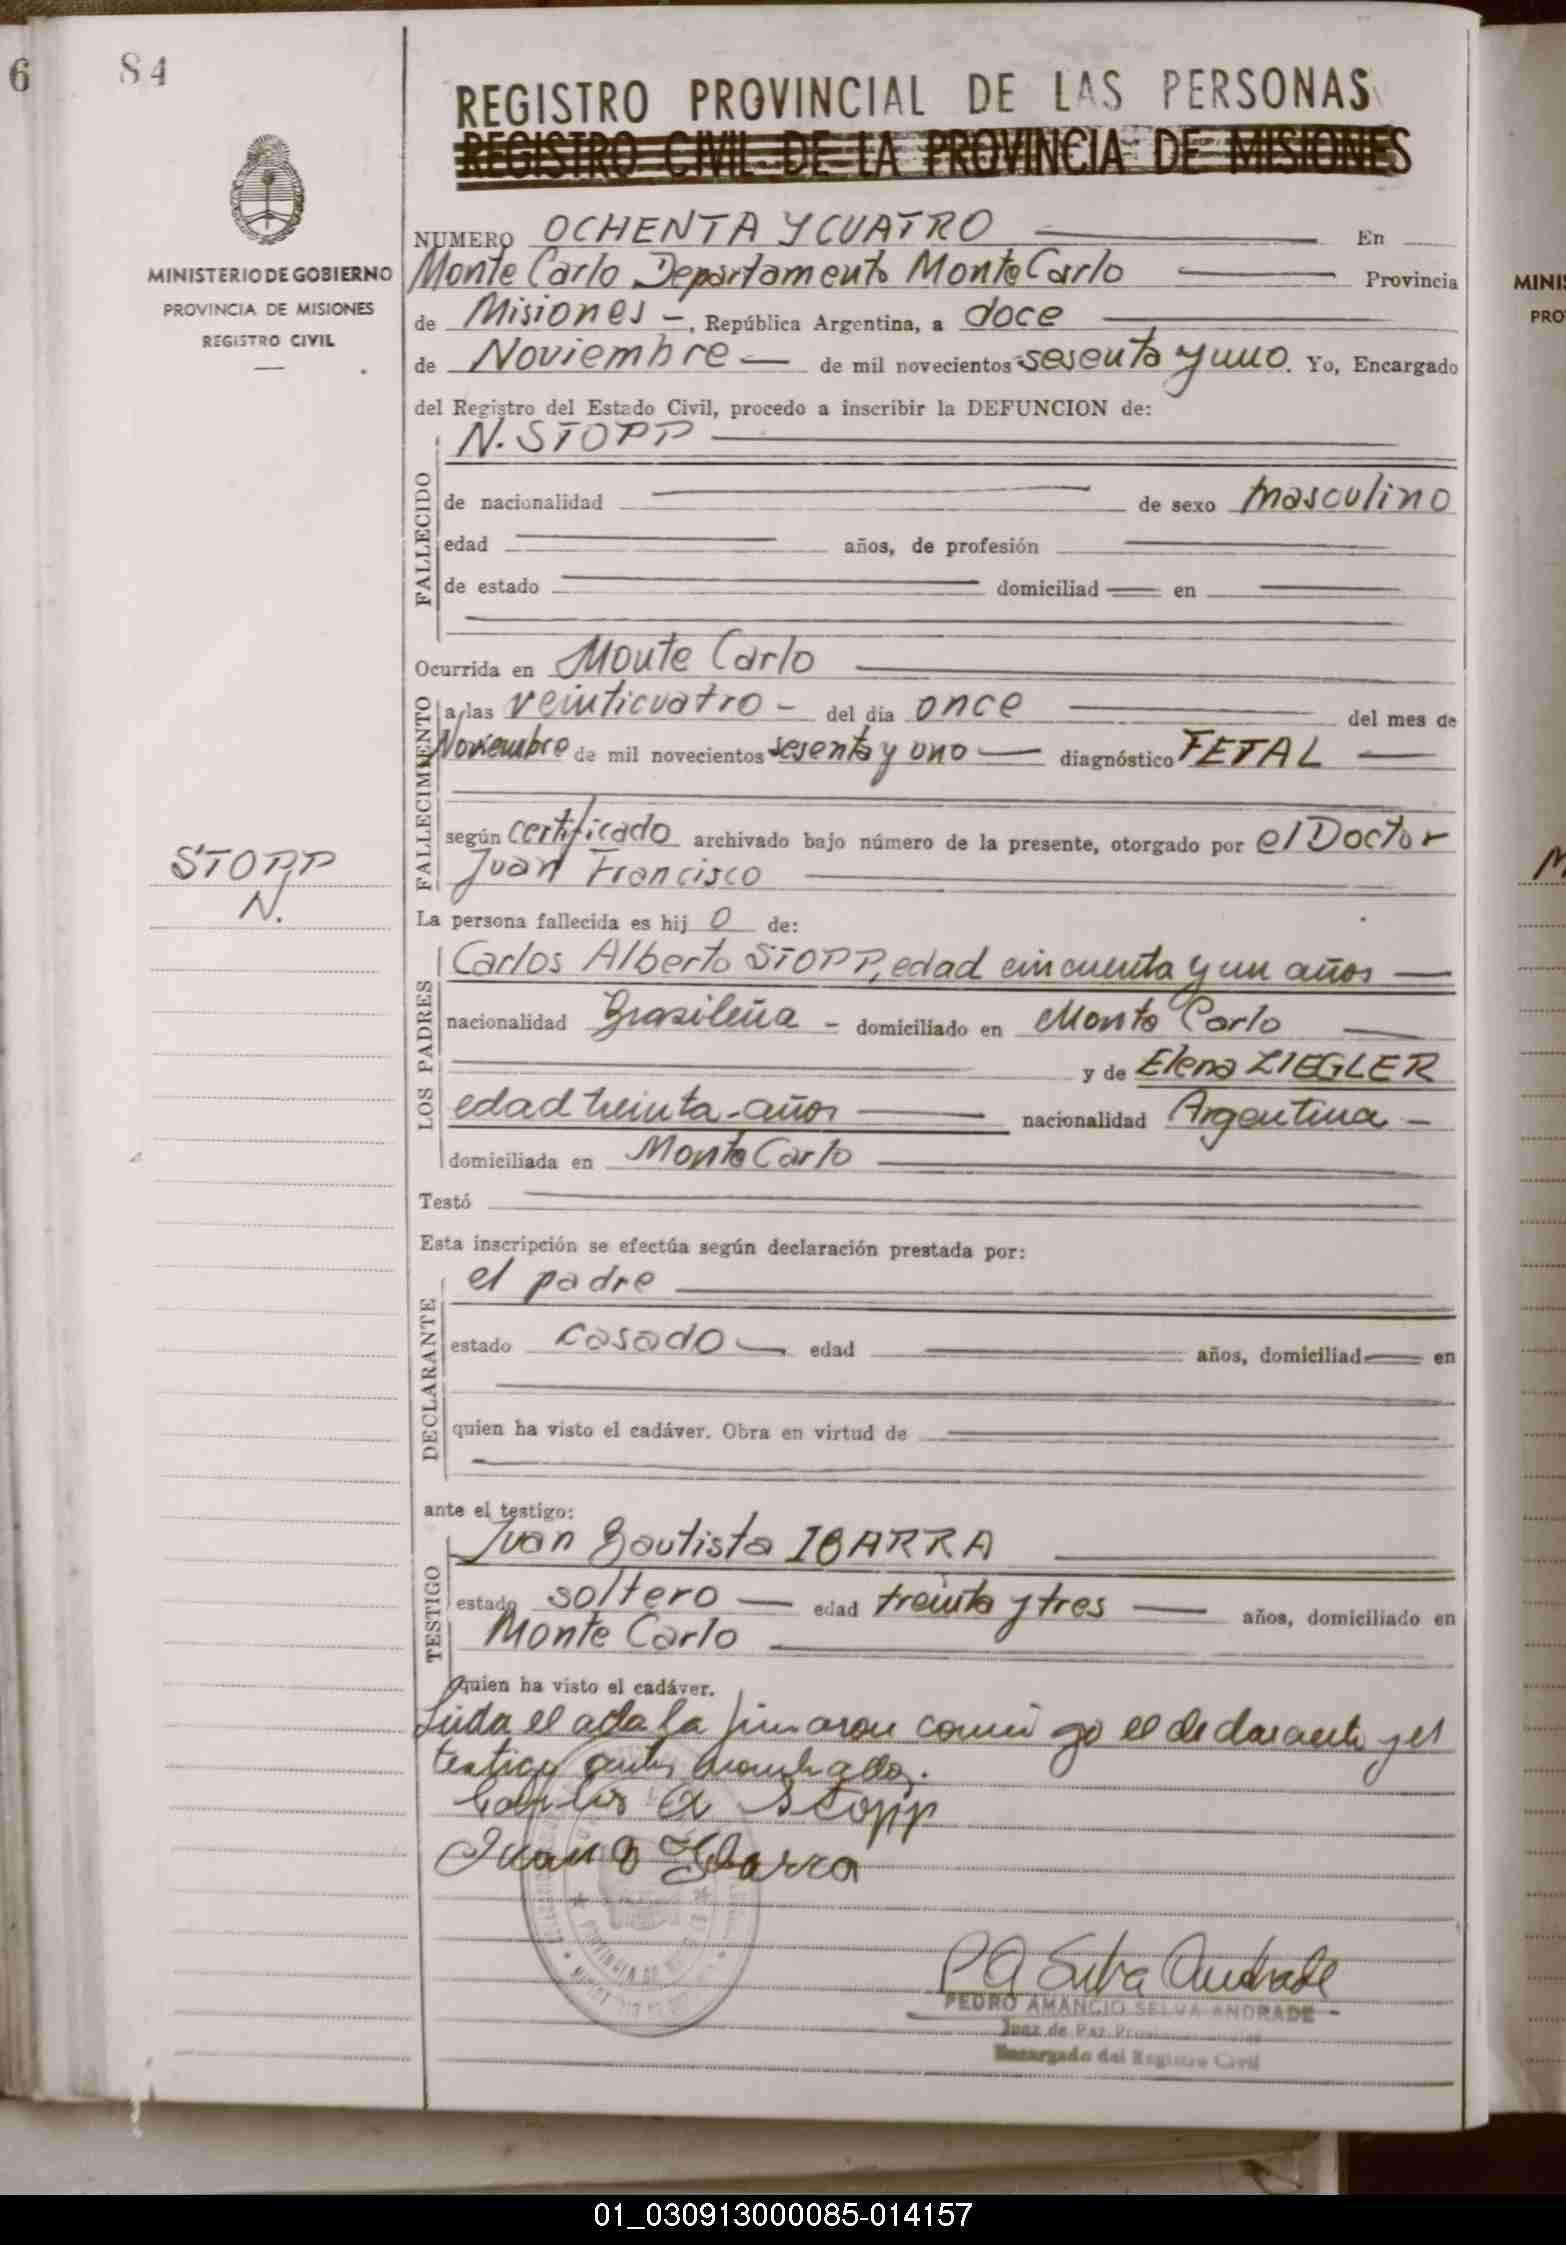 6
84
MINISTERIO DE GOBIERNO
PROVINCIA DE MISIONES
REGISTRO CIVIL
STOPP
N.
REGISTRO PROVINCIAL DE LAS PERSONAS
REGISTRO CIVIL DE LA PROVINCIA DE MISIONES
NUMERO OCHENTA Y CUATRO En
Monte Carlo Departamento Monte Carlo Provincia
de Misiones -, República Argentina, a doce
de Noviembre de mil novecientos sesenta y uno. Yo, Encargado
del Registro del Estado Civil, procedo a inscribir la DEFUNCION de:
N. STOPP
FALLECIDO
de nacionalidad de sexo masculino
edad años, de profesión
de estado domiciliad en
Ocurrida en Monte Carlo
FALLECIMIENTO
a las veinticuatro - del día once del mes de
Noviembre de mil novecientos sesenta y uno diagnóstico FETAL
según certificado archivado bajo número de la presente, otorgado por el Doctor
Juan Francisco
La persona fallecida es hij o de:
LOS PADRES
Carlos Alberto STOPP, edad cincuenta y un años
nacionalidad Brasileña - domiciliado en Monte Carlo
y de Elena ZIEGLER
edad treinta años nacionalidad Argentina -
domiciliada en Monte Carlo
Testó
Esta inscripción se efectúa según declaración prestada por:
DECLARANTE
el padre
estado casado edad años, domiciliad en
quien ha visto el cadáver. Obra en virtud de
ante el testigo:
TESTIGO
Juan Bautista IBARRA
estado soltero edad treinta y tres años, domiciliado en
Monte Carlo
quien ha visto el cadáver.
Leida el acta la firmaron conmigo el declarante y el
testigo antes nombrados.
Carlos A Stopp
Juan B Ibarra
PROVINCIA DE
P A Selva Andrade
PEDRO AMANCIO SELVA ANDRADE
Juez de Paz
Encargado del Registro Civil
MINIS
PRO
M
01_030913000085-014157